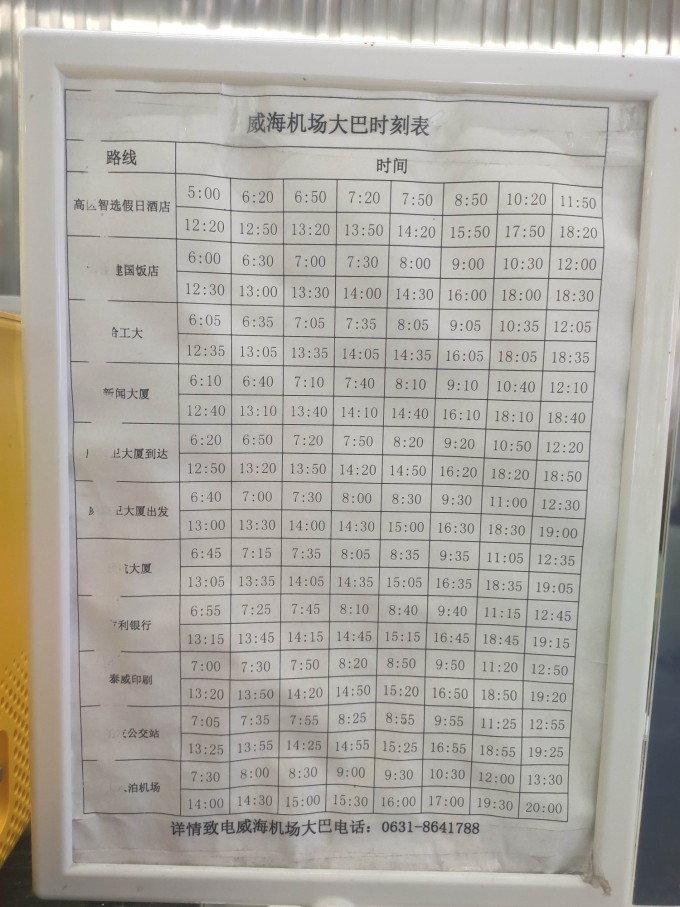 威海机场大巴时刻表
路线 时间
智选假日酒店 5:00 6:20 6:50 7:20 7:50 8:50 10:20 11:50
12:20 12:50 13:20 13:50 14:20 15:50 17:50 18:20
国饭店 6:00 6:30 7:00 7:30 8:00 9:00 10:30 12:00
12:30 13:00 13:30 14:00 14:30 16:00 18:00 18:30
工大 6:05 6:35 7:05 7:35 8:05 9:05 10:35 12:05
12:35 13:05 13:35 14:05 14:35 16:05 18:05 18:35
新闻大厦 6:10 6:40 7:10 7:40 8:10 9:10 10:40 12:10
12:40 13:10 13:40 14:10 14:40 16:10 18:10 18:40
大厦到达 6:20 6:50 7:20 7:50 8:20 9:20 10:50 12:20
12:50 13:20 13:50 14:20 14:50 16:20 18:20 18:50
大厦出发 6:40 7:00 7:30 8:00 8:30 9:30 11:00 12:30
13:00 13:30 14:00 14:30 15:00 16:30 18:30 19:00
大厦 6:45 7:15 7:35 8:05 8:35 9:35 11:05 12:35
13:05 13:35 14:05 14:35 15:05 16:35 18:35 19:05
利银行 6:55 7:25 7:45 8:10 8:40 9:40 11:15 12:45
13:15 13:45 14:15 14:45 15:15 16:45 18:45 19:15
泰威印刷 7:00 7:30 7:50 8:20 8:50 9:50 11:20 12:50
13:20 13:50 14:20 14:50 15:20 16:50 18:50 19:20
公交站 7:05 7:35 7:55 8:25 8:55 9:55 11:25 12:55
13:25 13:55 14:25 14:55 15:25 16:55 18:55 19:25
泊机场 7:30 8:00 8:30 9:00 9:30 10:30 12:00 13:30
14:00 14:30 15:00 15:30 16:00 17:00 19:30 20:00
详情致电威海机场大巴电话：0631-8641788